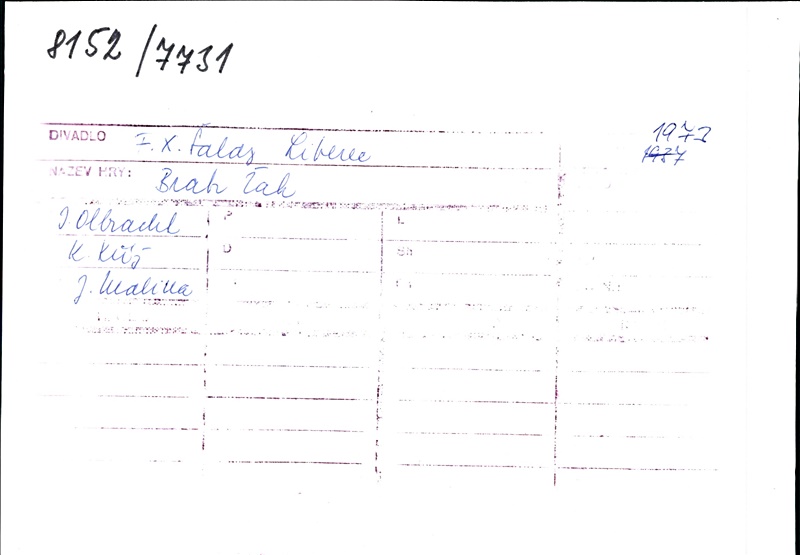 8152/7731
DIVADLO F. X. Šaldy Liberec
1973
1987
NÁZEV HRY: Bratr Žak
I Olbracht
P
L
K. Kříž
O
Sh
J. Malina